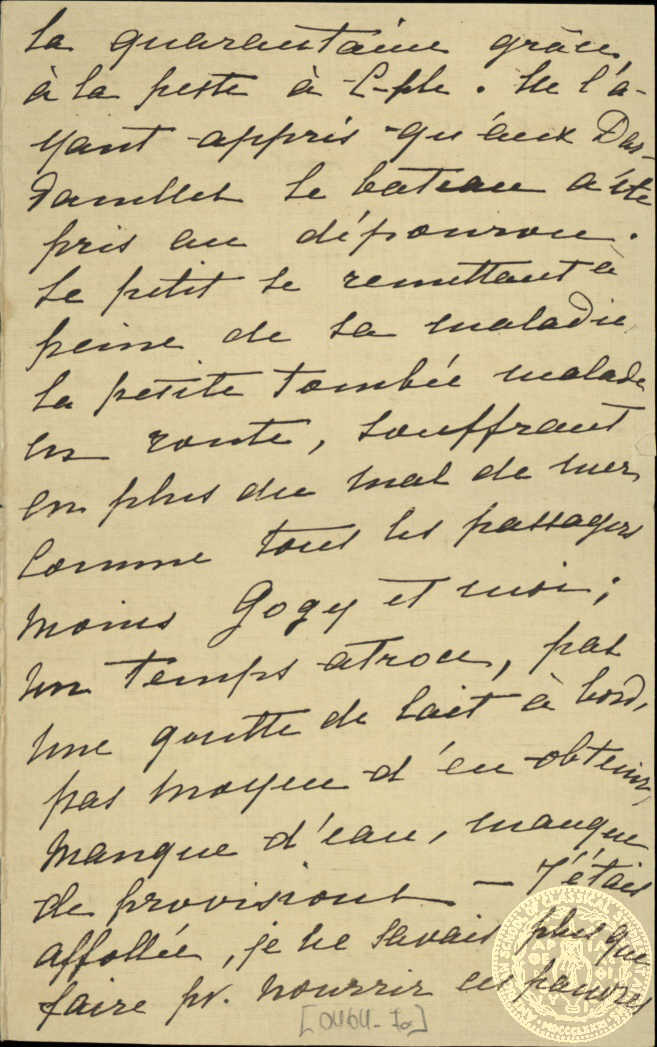 la quarantaine grâce
à la peste à C-ple. Ne l'a-
yant appris qu'aux Dar-
danelles le bateau a été
pris au dépourvu.
Le petit se remettant à
peine de sa maladie,
la petite tombée malade
en route, souffrant
en plus du mal de mer
comme tous les passagers
moins Gogy et moi;
un temps atroce, pas
une goutte de lait à bord,
pas moyen d'en obtenir,
manque d'eau, manque
de provisions — J'étais
affollée, je ne savais plus que
faire pr. nourrir ces pauvres